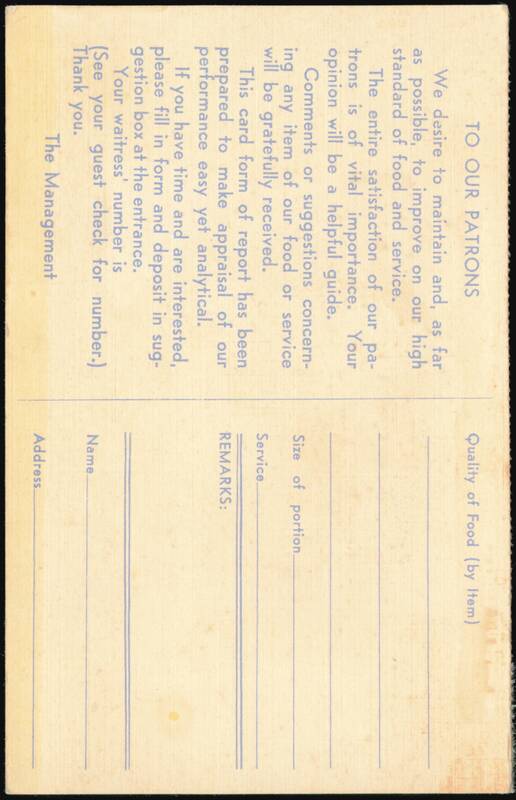 TO OUR PATRONS
We desire to maintain and, as far
as possible, to improve on our high
standard of food and service.
The entire satisfaction of our pa-
trons is of vital importance. Your
opinion will be a helpful guide.
Comments or suggestions concern-
ing any item of our food or service
will be gratefully received.
This card form of report has been
prepared to make appraisal of our
performance easy yet analytical.
If you have time and are interested,
please fill in form and deposit in sug-
gestion box at the entrance.
Your waitress' number is
(See your guest check for number.)
Thank you.
The Management
Quality of Food (by Item)
Size of portion
Service
REMARKS:
Name
Address